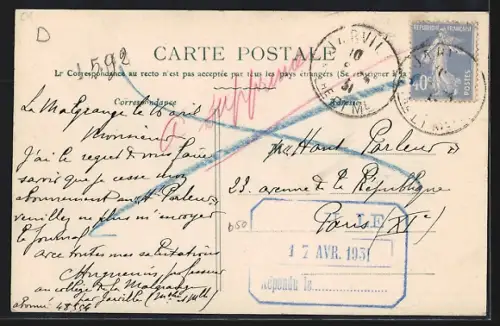 D
1592
CARTE POSTALE
La Correspondance au recto n'est pas acceptée par tous les pays étrangers (Se renseigner à la
Correspondance
Adresse
à supprimer
JARVILLE
10
31
RÉPUBLIQUE FRANÇAISE
40c
POSTES
La Malgrange le 16 avris
Monsieur
J'ai le regret de vous faire
savoir que je cesse mon
abonnement au "Ht Parleur"
veuillez ne plus m'envoyer
le journal
avec toutes mes salutations
professeur
au collège de la Malgrange
par Jarville (Mthe & Mlle)
abonné
"Haut Parleur"
23. avenue de la République
Paris (XIe)
650
17 AVR. 1931
Répondu le